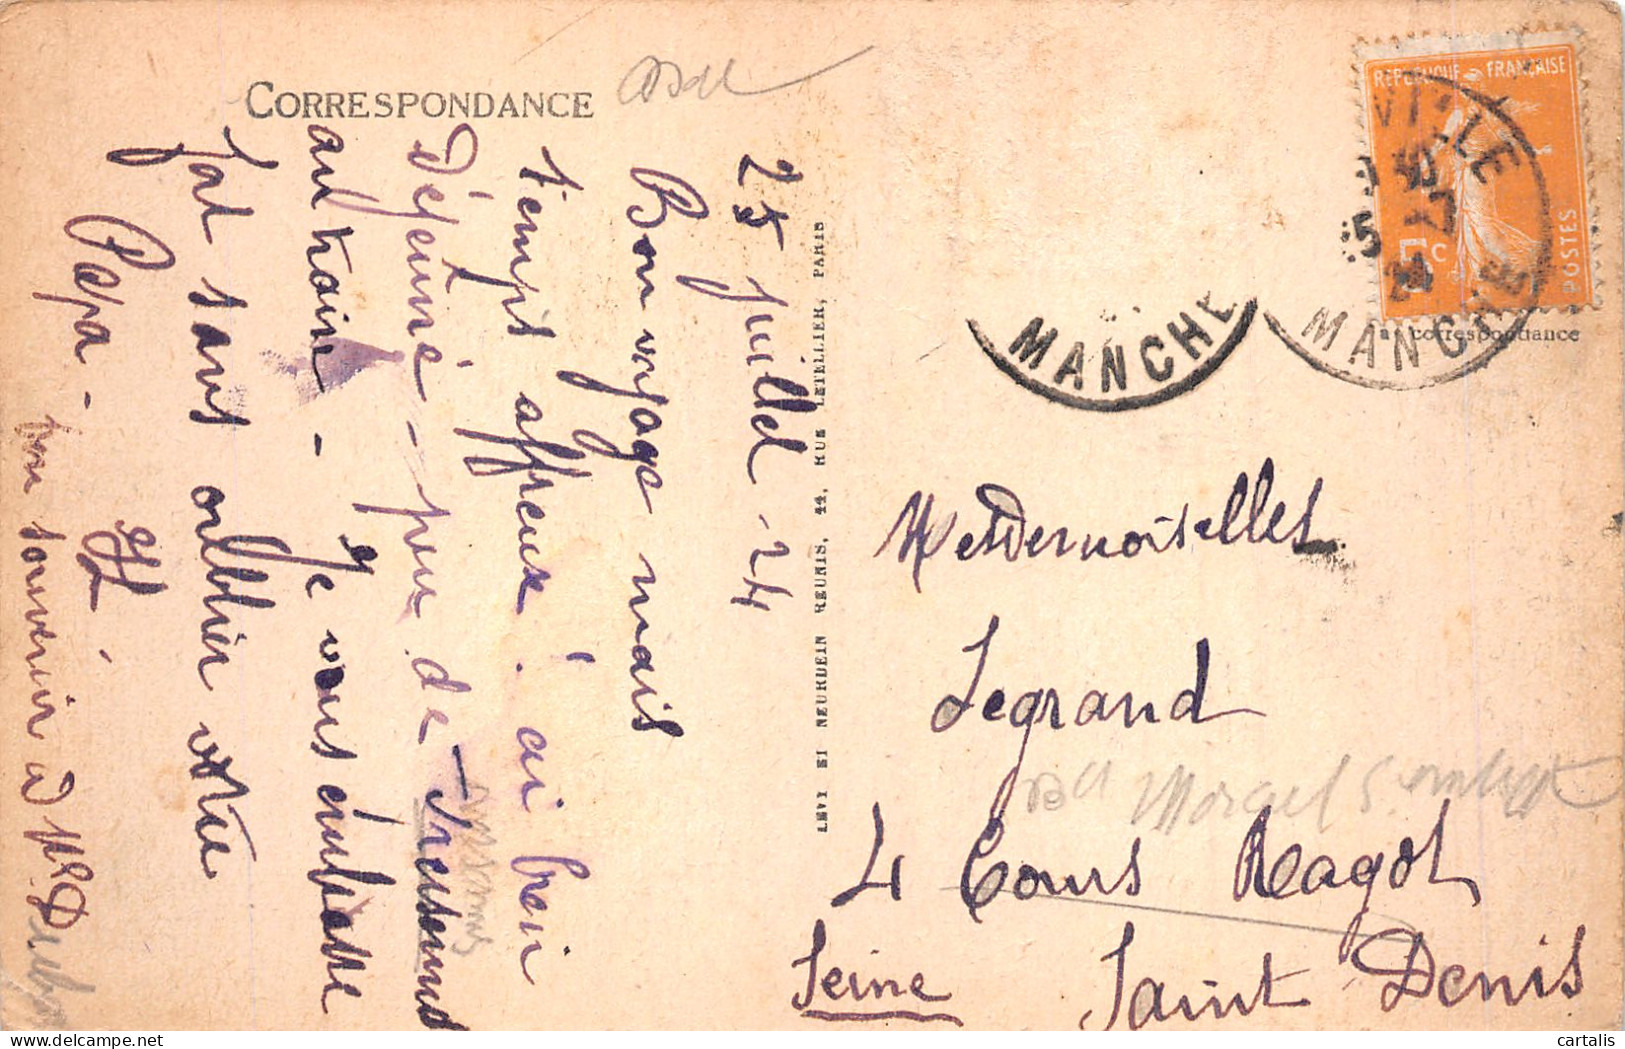 CORRESPONDANCE
25 juillet - 24
Bon voyage mais
temps affreux. ai bien
déjeuné - peu de
au train - Je vous embrasse
fort sans oublier votre
Papa -
bon souvenir à
LEVY ET NEURDEIN REUNIS, 44, RUE LETELLIER, PARIS
REPUBLIQUE FRANÇAISE
5c
POSTES
VILLE
MANCHE
MANCHE
correspondance
Mesdemoiselles
Legrand
4 Cours Ragot
Saint Denis
Seine
cartalis - delcampe.net